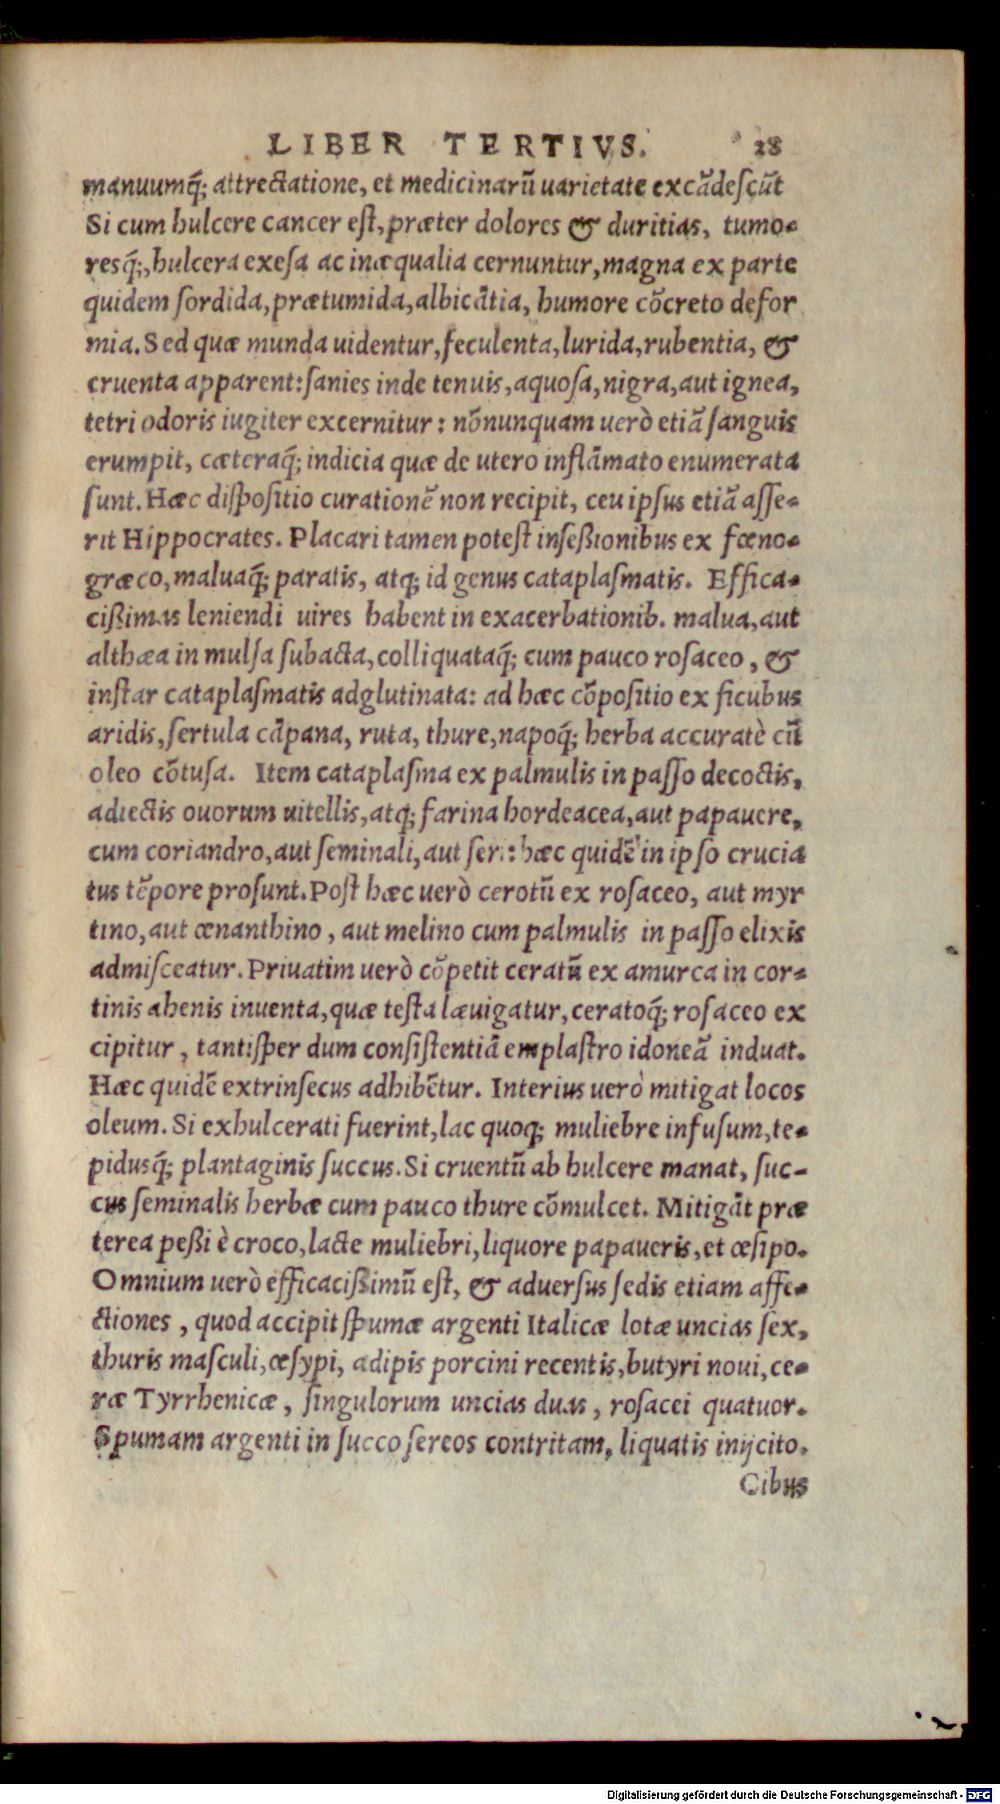 LIBER TERTIVS. 28
manuumq́; attrectatione, et medicinarū uarietate excādescūt
Si cum hulcere cancer est, præter dolores & duritias, tumo-
resq́;, hulcera exesa ac inæqualia cernuntur, magna ex parte
quidem sordida, prætumida, albicātia, humore cōcreto defor
mia. Sed quæ munda uidentur, feculenta, lurida, rubentia, &
cruenta apparent: sanies inde tenuis, aquosa, nigra, aut ignea,
tetri odoris iugiter excernitur: nōnunquam uerò etiā sanguis
erumpit, cæteraq́; indicia quæ de utero inflāmato enumerata
sunt. Hæc dispositio curationē non recipit, ceu ipsus etiā asse-
rit Hippocrates. Placari tamen potest inseßionibus ex fœno-
græco, maluaq́; paratis, atq; id genus cataplasmatis. Effica-
cißimas leniendi uires habent in exacerbationib. malua, aut
althæa in mulsa subacta, colliquataq́; cum pauco rosaceo, &
instar cataplasmatis adglutinata: ad hæc cōpositio ex ficubus
aridis, sertula cāpana, ruta, thure, napoq́; herba accuratè cū
oleo cōtusa. Item cataplasma ex palmulis in passo decoctis,
adiectis ouorum uitellis, atq; farina hordeacea, aut papauere,
cum coriandro, aut seminali, aut seri: hæc quidē in ipso crucia
tus tēpore prosunt. Post hæc uerò cerotū ex rosaceo, aut myr
tino, aut œnanthino, aut melino cum palmulis in passo elixis
admisceatur. Priuatim uerò cōpetit ceratū ex amurca in cor-
tinis ahenis inuenta, quæ testa læuigatur, ceratoq́; rosaceo ex
cipitur, tantisper dum consistentiā emplastro idoneā induat.
Hæc quidē extrinsecus adhibētur. Interius uerò mitigat locos
oleum. Si exhulcerati fuerint, lac quoq; muliebre infusum, te-
pidusq́; plantaginis succus. Si cruentū ab hulcere manat, suc-
cus seminalis herbæ cum pauco thure cōmulcet. Mitigāt præ
terea peßi è croco, lacte muliebri, liquore papaueris, et œsipo.
Omnium uerò efficacißimū est, & aduersus sedis etiam affe-
ctiones, quod accipit spumæ argenti Italicæ lotæ uncias sex,
thuris masculi, œsypi, adipis porcini recentis, butyri noui, ce-
ræ Tyrrhenicæ, singulorum uncias duas, rosacei quatuor.
Spumam argenti in succo sereos contritam, liquatis inijcito.
Cibus
Digitalisierung gefördert durch die Deutsche Forschungsgemeinschaft - DFG